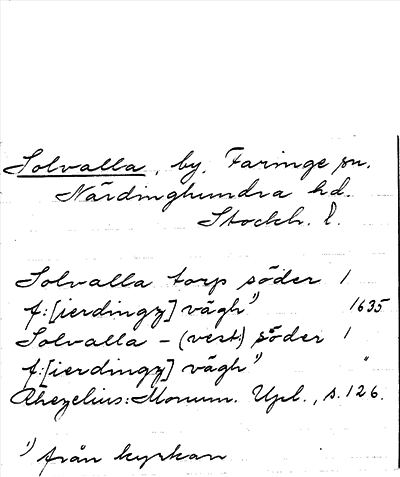 Solvalla, by, Faringe sn.
Närdinghundra hd.
Stockh. l.
Solvalla torp söder 1
f:[ierdingz] vägh¹⁾ 1635
Solvalla - (vest) söder 1
f:[ierdingz] vägh¹⁾ "
Rhezelius: Monum. Upl., s. 126.
¹⁾ från kyrkan